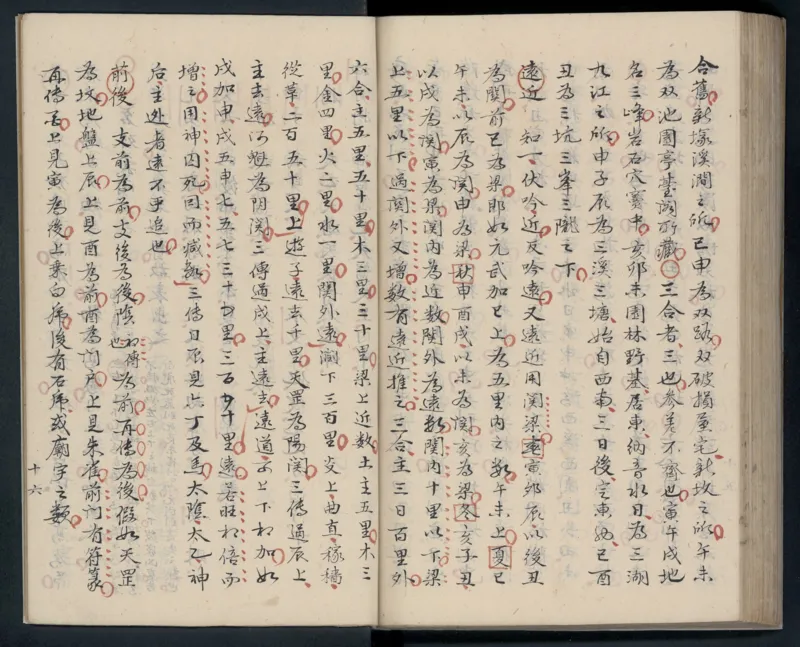 合舊新塚溪澗之所巳申為双路双破損黃宅新坟之所午未
為双池園亭臺閣所藏三合者三也参差不齊也寅午戌地
名三峰岩石穴窯中亥卯未園林野墓居東納音水日為三湖
九江之所申子辰為三溪三塘始自西南三日後定東如巳酉
丑為三坑三峯三隴之下
遠近 知一伏吟近反吟遠又遠近用関梁遠寅卯辰以後丑
為関前巳為梁即如元武加巳上為五里内之午未上夏巳
午未以辰為関申為梁秋申酉戌以未為関亥為梁冬亥子丑
以戌為関寅為梁関内為近数関外為遠数関内十里以下梁
上五里以下過関外又增数有遠近推之三合主三日百里外
六合主五里五十里木三里三十里梁上近数土主五里木三
里金四里火二里水一里関外遠澗下三百里炎上曲直稼穡
從革二百五十里上遊子遠去千里天罡為陽関三傳過辰上
主去遠河魁為阴関三傳過戌上主遠去遠道子上下相加如
戌加申戌五申七五七三十五里三百五十里遠若旺相倍而
增之用神囚死因而减無三傳日不見占丁及馬太陰太乙神
后主逃者遠不更追也
前後 支前為前支後為後陰也初傳為前再傳為後假如天罡
為坟地盤上辰上見酉為前酉為门户上見朱雀前门有符篆
再傳子上見寅為後上乗白虎後有石虎或廟宇之類
十六